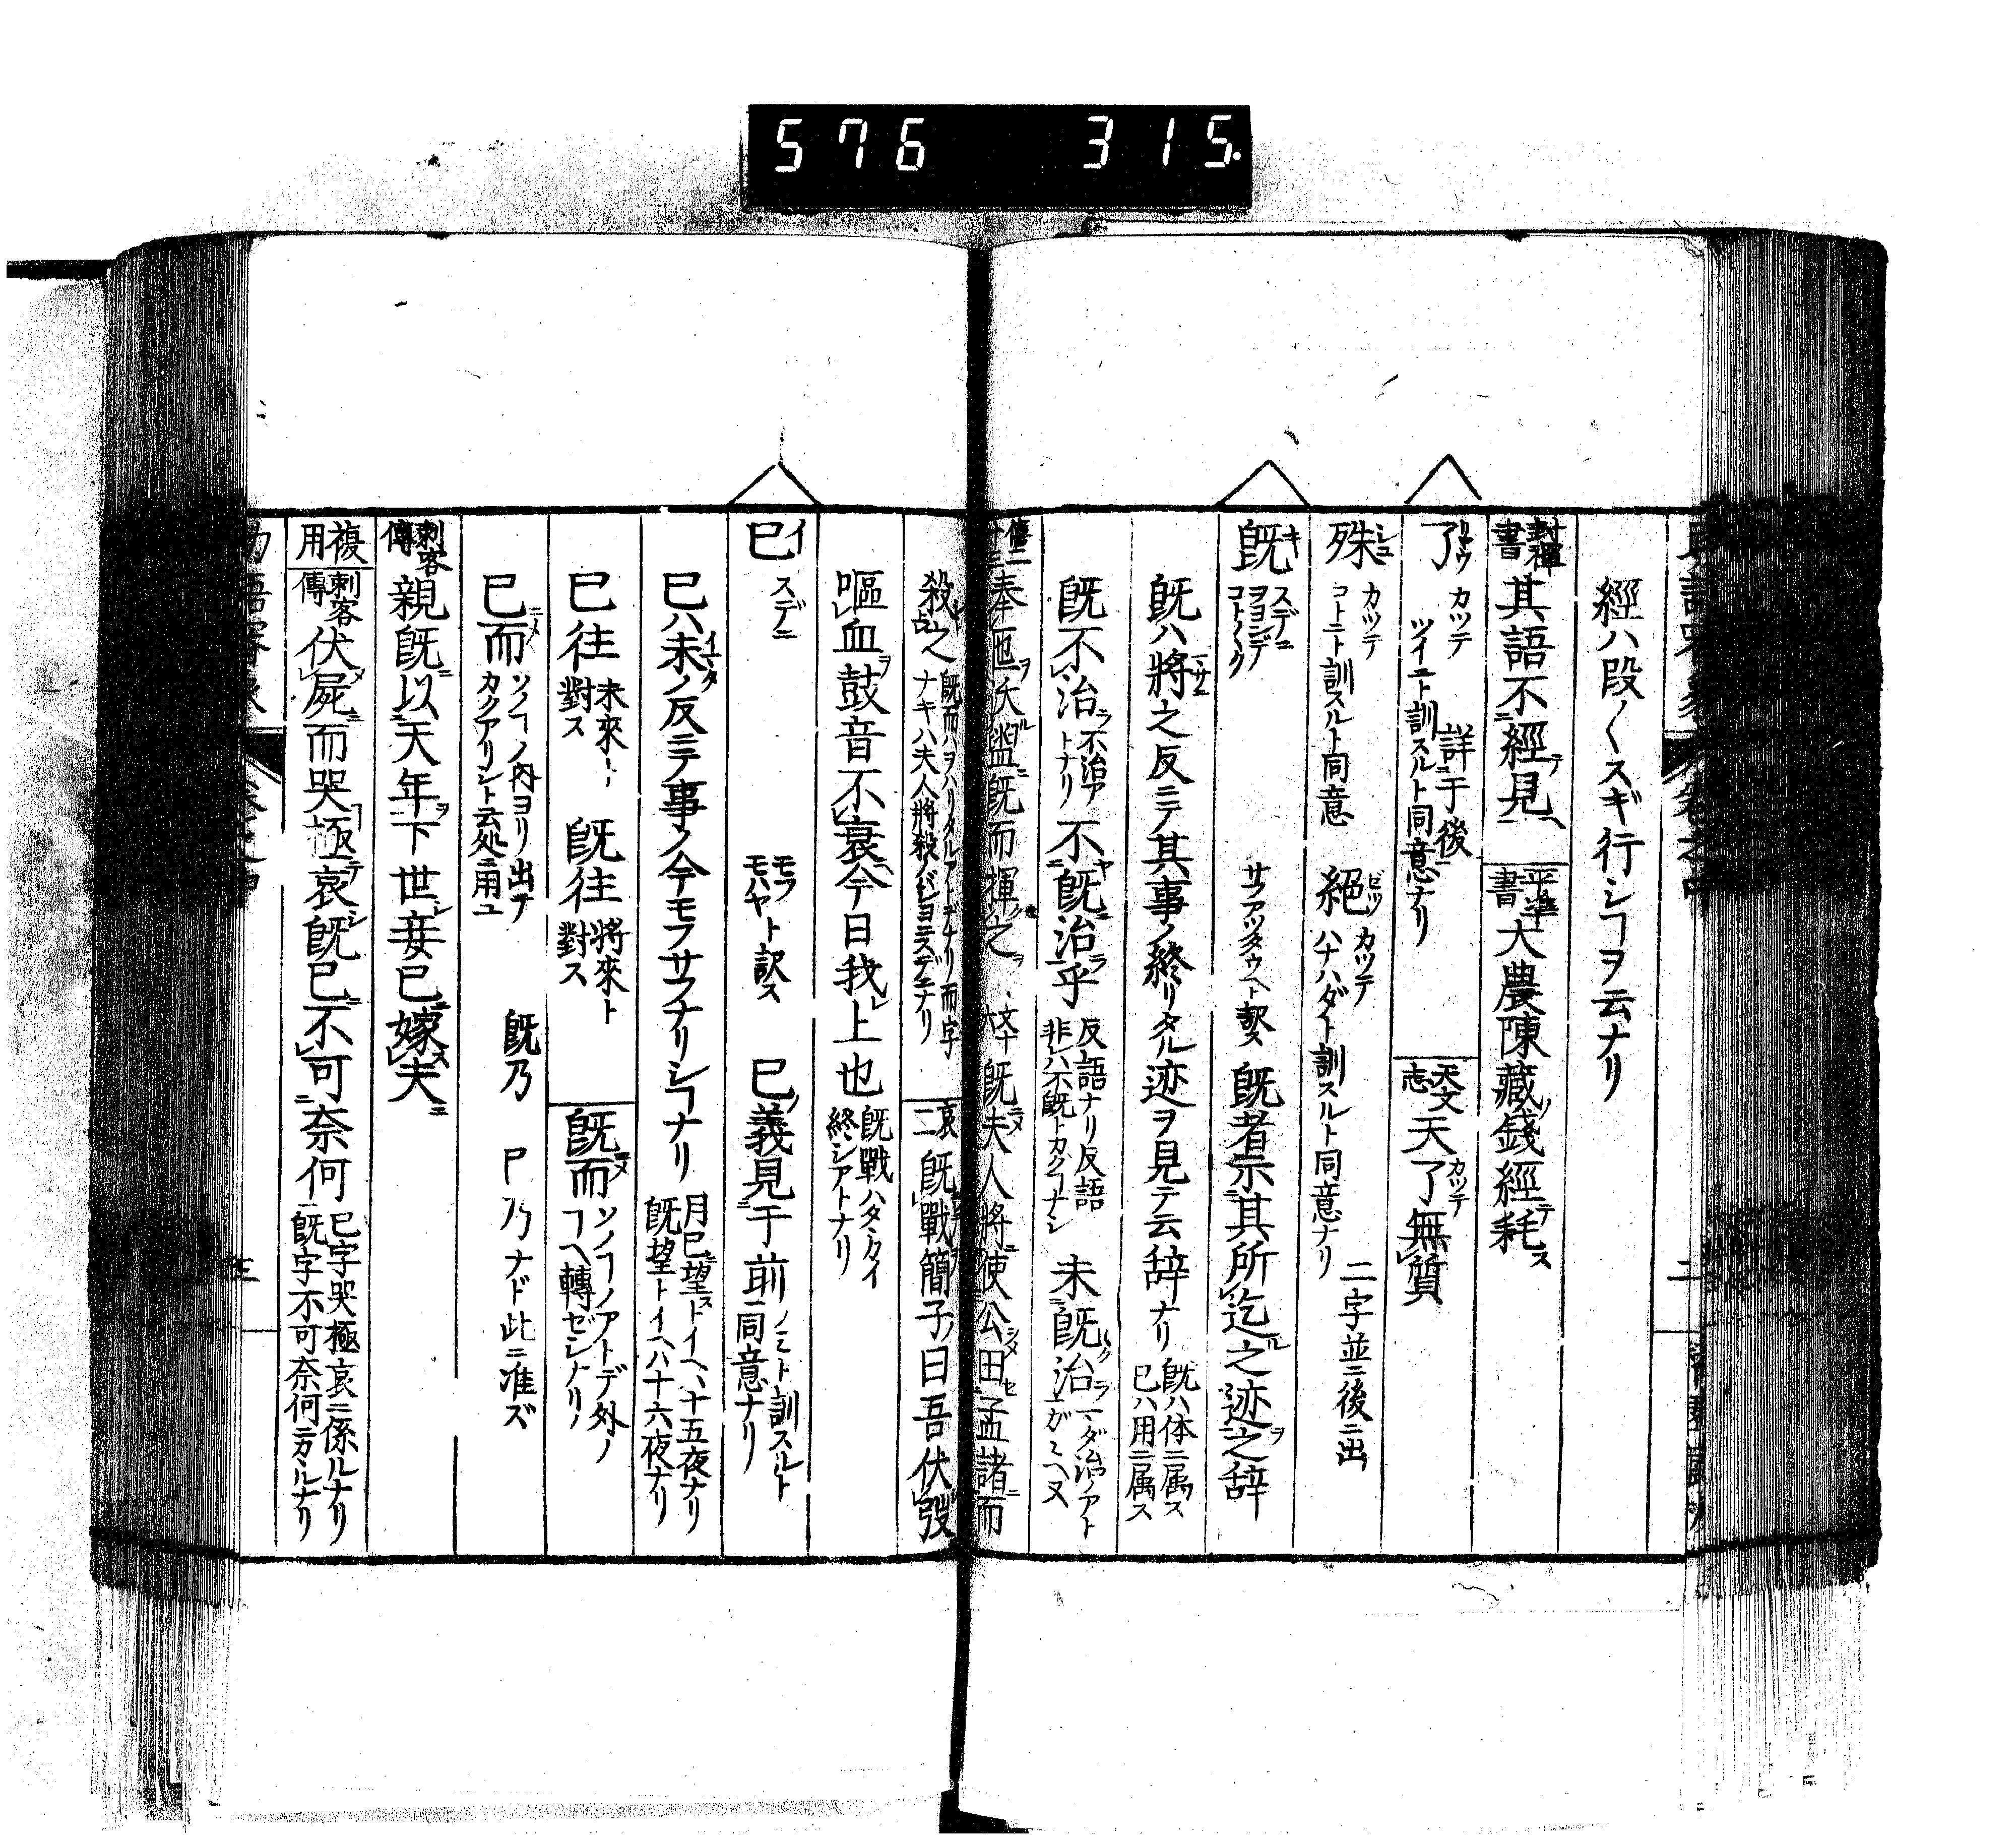 576 315.
經ハ段〱スギ行シヿヲ云ナリ
封禪書 其語不經見 平準書 大農陳藏錢經耗
了 リヤウ カツテ 詳于後 ツイニト訓スルト同意ナリ 天文志 天了無質
殊 シユ カツテ コトニト訓スルト同意 絕 ゼツ カツテ ハナハダト訓スルト同意ナリ 二字並ニ後ニ出
既 キ スデニ ヲヨンデ コト〲ク 既者示其所迄之迹之辞
既ハ將之反ニテ其事ノ終リタル迹ヲ見テ云辞ナリ 既ハ体ニ属ス 已ハ用ニ属ス
既不治 トナリ 不既治乎 反語ナリ反語 非ハ不既トカクヿナシ 未既治
奉匜沃盥既而揮之 既夫人將使公田孟諸而
殺之 既而ハヲハリタルアトデナリ而字 ナキハ夫人將殺 哀二 既戰簡子曰吾伏弢
嘔血鼓音不衰今日我上也 既戰ハタヽカイ 終シアトナリ
已 イ スデニ モフ モハヤト訳ス 已義見于前 ノミト訓スルト 同意ナリ
已ハ未ノ反ニテ事ノ今モフサフナリシヿナリ 月已望トイヘハ十五夜ナリ 既望トイヘハ十六夜ナリ
已往 未來ニ 對ス 既往 將來ト 對ス 既而 ソノヿノアトデ外ノ ヿヘ轉ゼシナリ
已而 ソノヿノ内ヨリ出テ カクアリシト云処ニ用ユ 既乃 已乃ナド此ニ准ズ
刺客傳 親既以天年下世妾已嫁夫
複用 刺客傳 伏屍而哭極哀既已不可奈何 已字哭極哀ニ係ルナリ 既字不可奈何ニカヽルナリ